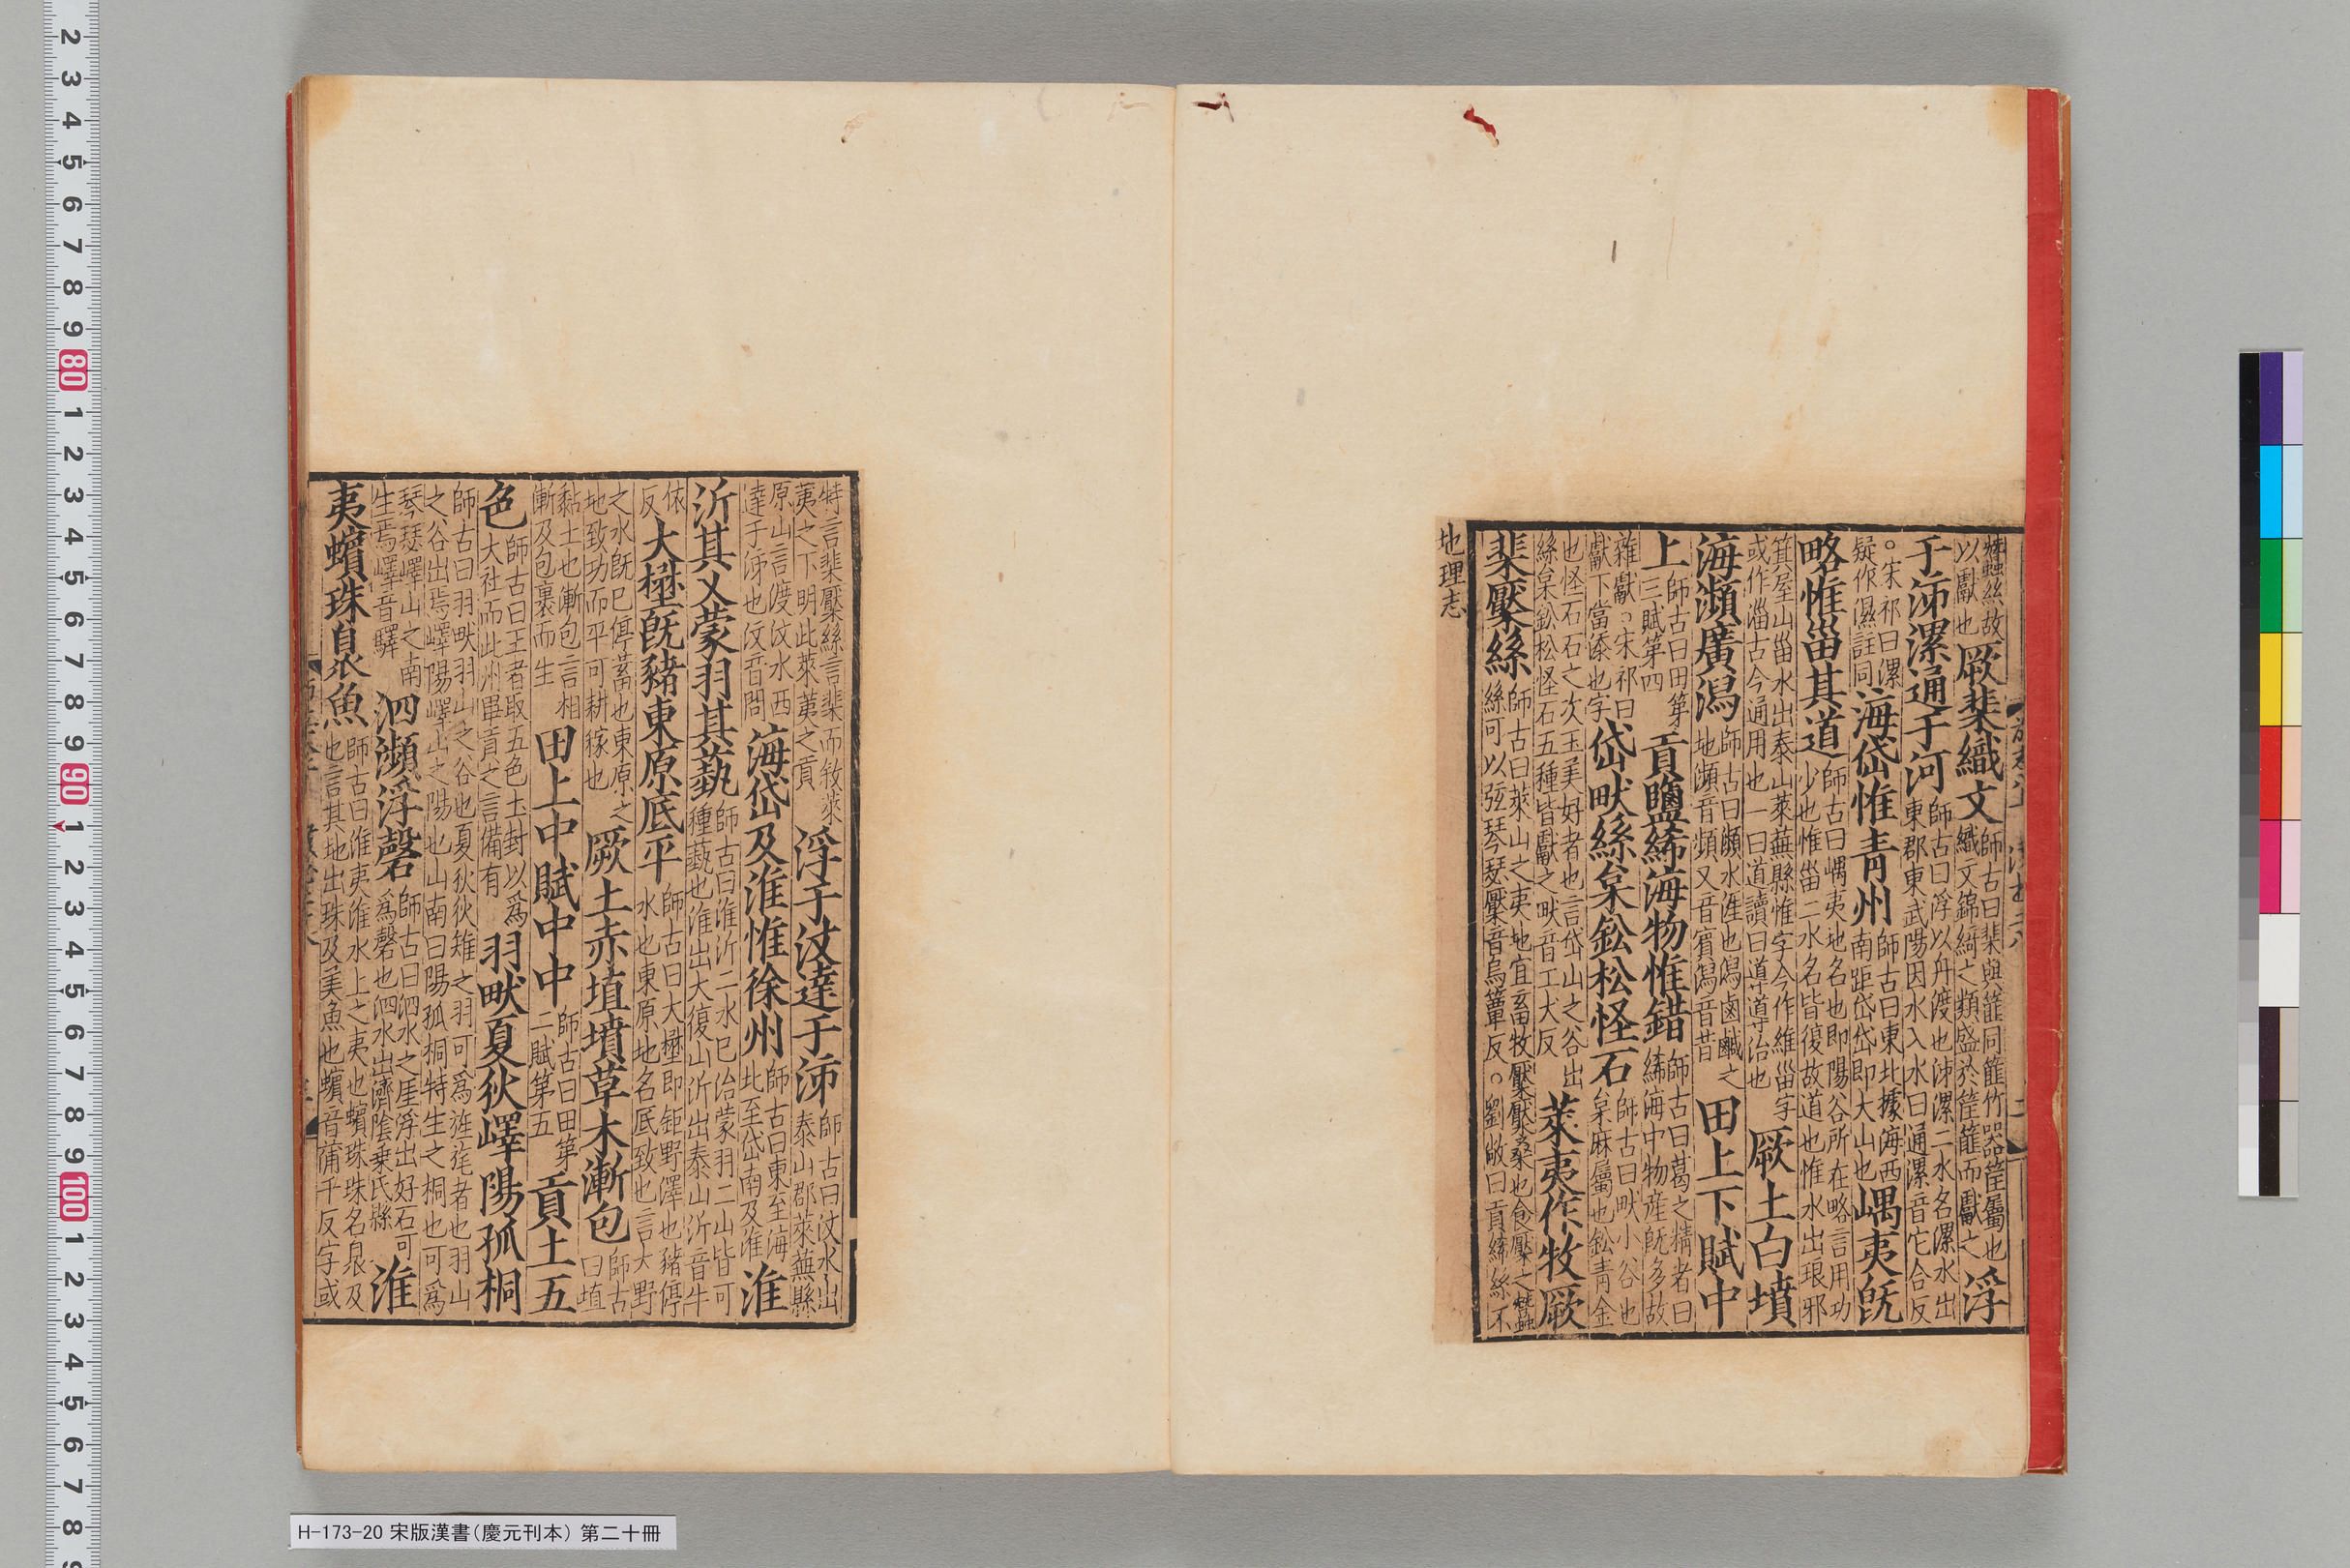 蠶絲故以獻也厥棐織文師古曰棐與篚同篚竹器筐屬也織文錦綺之類盛於筐篚而獻之浮
于泲漯通于河師古曰浮以舟渡也泲漯二水名漯水出東郡東武陽因水入水曰通漯音它合反
。宋祁曰漯疑作濕註同海岱惟青州師古曰東北據海西南距岱岱即大山也嵎夷既
略惟甾其道師古曰嵎夷地名也即陽谷所在略言用功少也惟甾二水名皆復故道也惟水出琅邪
箕屋山甾水出泰山萊蕪縣惟字今作維甾字或作淄古今通用也一曰道讀曰導導治也厥土白墳
海瀕廣潟師古曰瀕水涯也潟鹵鹹之地瀕音頻又音賓潟音昔田上下賦中
上師古曰田第三賦第四貢鹽絺海物惟錯師古曰葛之精者曰絺海中物産既多故
雜獻。宋祁曰獻下當添也字岱畎絲枲鈆松怪石師古曰畎小谷也枲麻屬也鈆青金
也怪石石之次玉美好者也言岱山之谷出絲枲鈆松怪石五種皆獻之畎音工犬反萊夷作牧厥
棐檿絲師古曰萊山之夷地宜畜牧檿檿桑也食檿之蠶絲可以弦琴瑟檿音烏簟反。劉敞曰貢絺絲不
地理志
特言棐檿絲言棐而敘萊夷之下明此萊夷之貢浮于汶達于泲師古曰汶水出泰山郡萊蕪縣
原山言渡汶水西達于泲也汶音問海岱及淮惟徐州師古曰東至海北至岱南及淮淮
沂其乂蒙羽其蓺師古曰淮沂二水已治蒙羽二山皆可種蓺也淮出大復山沂出泰山沂音牛
依反大壄既豬東原底平師古曰大壄即鉅野澤也豬停水也東原地名底致也言大野
之水既已停蓄也東原之地致功而平可耕稼也厥土赤埴墳草木漸包師古曰埴
黏土也漸包言相漸及包裹而生田上中賦中中師古曰田第二賦第五貢土五
色師古曰王者取五色土封以爲大社而此州畢貢之言備有羽畎夏狄嶧陽孤桐
師古曰羽畎羽山之谷也夏狄狄雉之羽可爲旌旄者也羽山之谷出焉嶧陽嶧山之陽也山南曰陽孤桐特生之桐也可爲
琴瑟嶧山之南生焉嶧音驛泗瀕浮磬師古曰泗水之厓浮出好石可爲磬也泗水出濟陰乗氏縣淮
夷蠙珠臮魚師古曰淮夷淮水上之夷也蠙珠珠名臮及也言其地出珠及美魚也蠙音蒲千反字或
H-173-20 宋版漢書（慶元刊本） 第二十冊